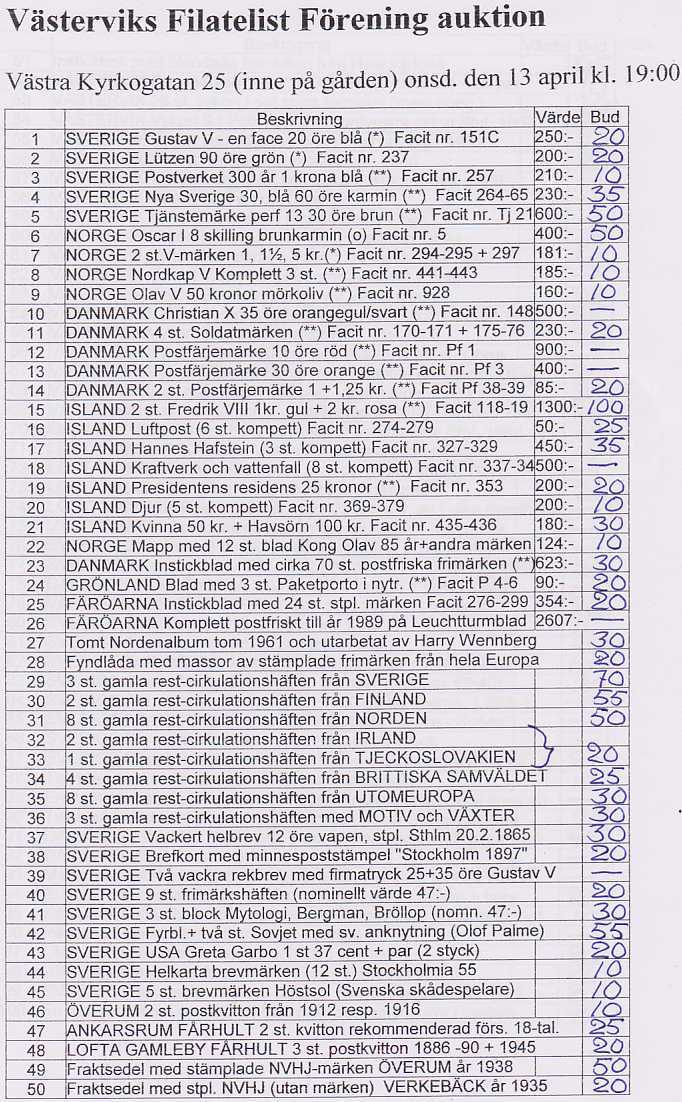 Västerviks Filatelist Förening auktion
Västra Kyrkogatan 25 (inne på gården) onsd. den 13 april kl. 19:00
Beskrivning Värde Bud
1 SVERIGE Gustav V - en face 20 öre blå (*) Facit nr. 151C 250:- 20
2 SVERIGE Lützen 90 öre grön (*) Facit nr. 237 200:- 20
3 SVERIGE Postverket 300 år 1 krona blå (**) Facit nr. 257 210:- 10
4 SVERIGE Nya Sverige 30, blå 60 öre karmin (**) Facit 264-65 230:- 35
5 SVERIGE Tjänstemärke perf 13 30 öre brun (**) Facit nr. Tj 21 600:- 50
6 NORGE Oscar I 8 skilling brunkarmin (o) Facit nr. 5 400:- 50
7 NORGE 2 st.V-märken 1, 1½, 5 kr.(*) Facit nr. 294-295 + 297 181:- 10
8 NORGE Nordkap V Komplett 3 st. (**) Facit nr. 441-443 185:- 10
9 NORGE Olav V 50 kronor mörkoliv (**) Facit nr. 928 160:- 10
10 DANMARK Christian X 35 öre orangegul/svart (**) Facit nr. 148 500:- —
11 DANMARK 4 st. Soldatmärken (**) Facit nr. 170-171 + 175-76 230:- 20
12 DANMARK Postfärjemärke 10 öre röd (**) Facit nr. Pf 1 900:- —
13 DANMARK Postfärjemärke 30 öre orange (**) Facit nr. Pf 3 400:- —
14 DANMARK 2 st. Postfärjemärke 1 +1,25 kr. (**) Facit Pf 38-39 85:- 20
15 ISLAND 2 st. Fredrik VIII 1kr. gul + 2 kr. rosa (**) Facit 118-19 1300:- 100
16 ISLAND Luftpost (6 st. kompett) Facit nr. 274-279 50:- 25
17 ISLAND Hannes Hafstein (3 st. kompett) Facit nr. 327-329 450:- 35
18 ISLAND Kraftverk och vattenfall (8 st. kompett) Facit nr. 337-34 500:- —
19 ISLAND Presidentens residens 25 kronor (**) Facit nr. 353 200:- 20
20 ISLAND Djur (5 st. kompett) Facit nr. 369-379 200:- 10
21 ISLAND Kvinna 50 kr. + Havsörn 100 kr. Facit nr. 435-436 180:- 30
22 NORGE Mapp med 12 st. blad Kong Olav 85 år+andra märken 124:- 10
23 DANMARK Instickblad med cirka 70 st. postfriska frimärken (**) 623:- 30
24 GRÖNLAND Blad med 3 st. Paketporto i nytr. (**) Facit P 4-6 90:- 20
25 FÄRÖARNA Instickblad med 24 st. stpl. märken Facit 276-299 354:- 20
26 FÄRÖARNA Komplett postfriskt till år 1989 på Leuchtturmblad 2607:- —
27 Tomt Nordenalbum tom 1961 och utarbetat av Harry Wennberg 30
28 Fyndlåda med massor av stämplade frimärken från hela Europa 20
29 3 st. gamla rest-cirkulationshäften från SVERIGE 70
30 2 st. gamla rest-cirkulationshäften från FINLAND 55
31 8 st. gamla rest-cirkulationshäften från NORDEN 50
32 2 st. gamla rest-cirkulationshäften från IRLAND
33 1 st. gamla rest-cirkulationshäften från TJECKOSLOVAKIEN } 20
34 4 st. gamla rest-cirkulationshäften från BRITTISKA SAMVÄLDET 25
35 8 st. gamla rest-cirkulationshäften från UTOMEUROPA 30
36 3 st. gamla rest-cirkulationshäften med MOTIV och VÄXTER 30
37 SVERIGE Vackert helbrev 12 öre vapen, stpl. Sthlm 20.2.1865 30
38 SVERIGE Brefkort med minnespoststämpel "Stockholm 1897" 20
39 SVERIGE Två vackra rekbrev med firmatryck 25+35 öre Gustav V —
40 SVERIGE 9 st. frimärkshäften (nominellt värde 47:-) 20
41 SVERIGE 3 st. block Mytologi, Bergman, Bröllop (nomn. 47:-) 30
42 SVERIGE Fyrbl.+ två st. Sovjet med sv. anknytning (Olof Palme) 55
43 SVERIGE USA Greta Garbo 1 st 37 cent + par (2 styck) 20
44 SVERIGE Helkarta brevmärken (12 st.) Stockholmia 55 10
45 SVERIGE 5 st. brevmärken Höstsol (Svenska skådespelare) 10
46 ÖVERUM 2 st. postkvitton från 1912 resp. 1916 10
47 ANKARSRUM FÅRHULT 2 st. kvitton rekommenderad förs. 18-tal. 25
48 LOFTA GAMLEBY FÅRHULT 3 st. postkvitton 1886 -90 + 1945 20
49 Fraktsedel med stämplade NVHJ-märken ÖVERUM år 1938 50
50 Fraktsedel med stpl. NVHJ (utan märken) VERKEBÄCK år 1935 20